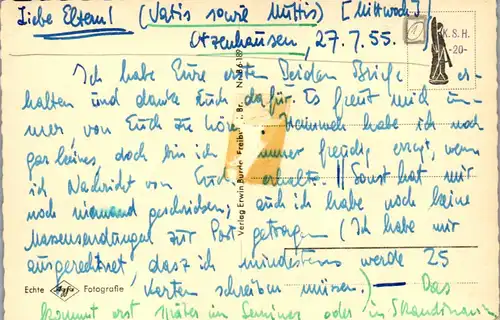 Liebe Eltern! (Vatis sowie Muttis) [Mittwoch]
Otzenhausen, 27.7.55.
K.S.H.
-20-
Ich habe Eure ersten beiden Briefe er-
halten und danke Euch dafür. Es freut mich im-
mer, von Euch zu hören. Heimweh habe ich noch
gar keines, doch bin ich immer freudig erregt, wenn
ich Nachricht von Euch erhalte. || Sonst hat mir
noch niemand geschrieben; auch ich habe noch keine
Massensendungen zur Post getragen (Ich habe mir
ausgerechnet, dasz ich mindestens werde 25
Karten schreiben müssen.) — Das
kommt erst später im Seminar oder in Skandinavien
Verlag Erwin Burda Freiburg i. Br. Nr.
Echte Agfa Fotografie